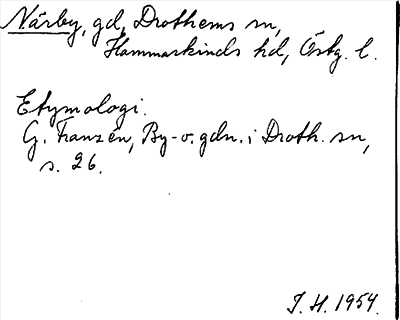 Närby, gd, Drothems sn,
Hammarkinds hd, Östg. l.
Etymologi.
G. Franzén, By- o. gdn. i Droth. sn,
s. 26.
J. H. 1954.